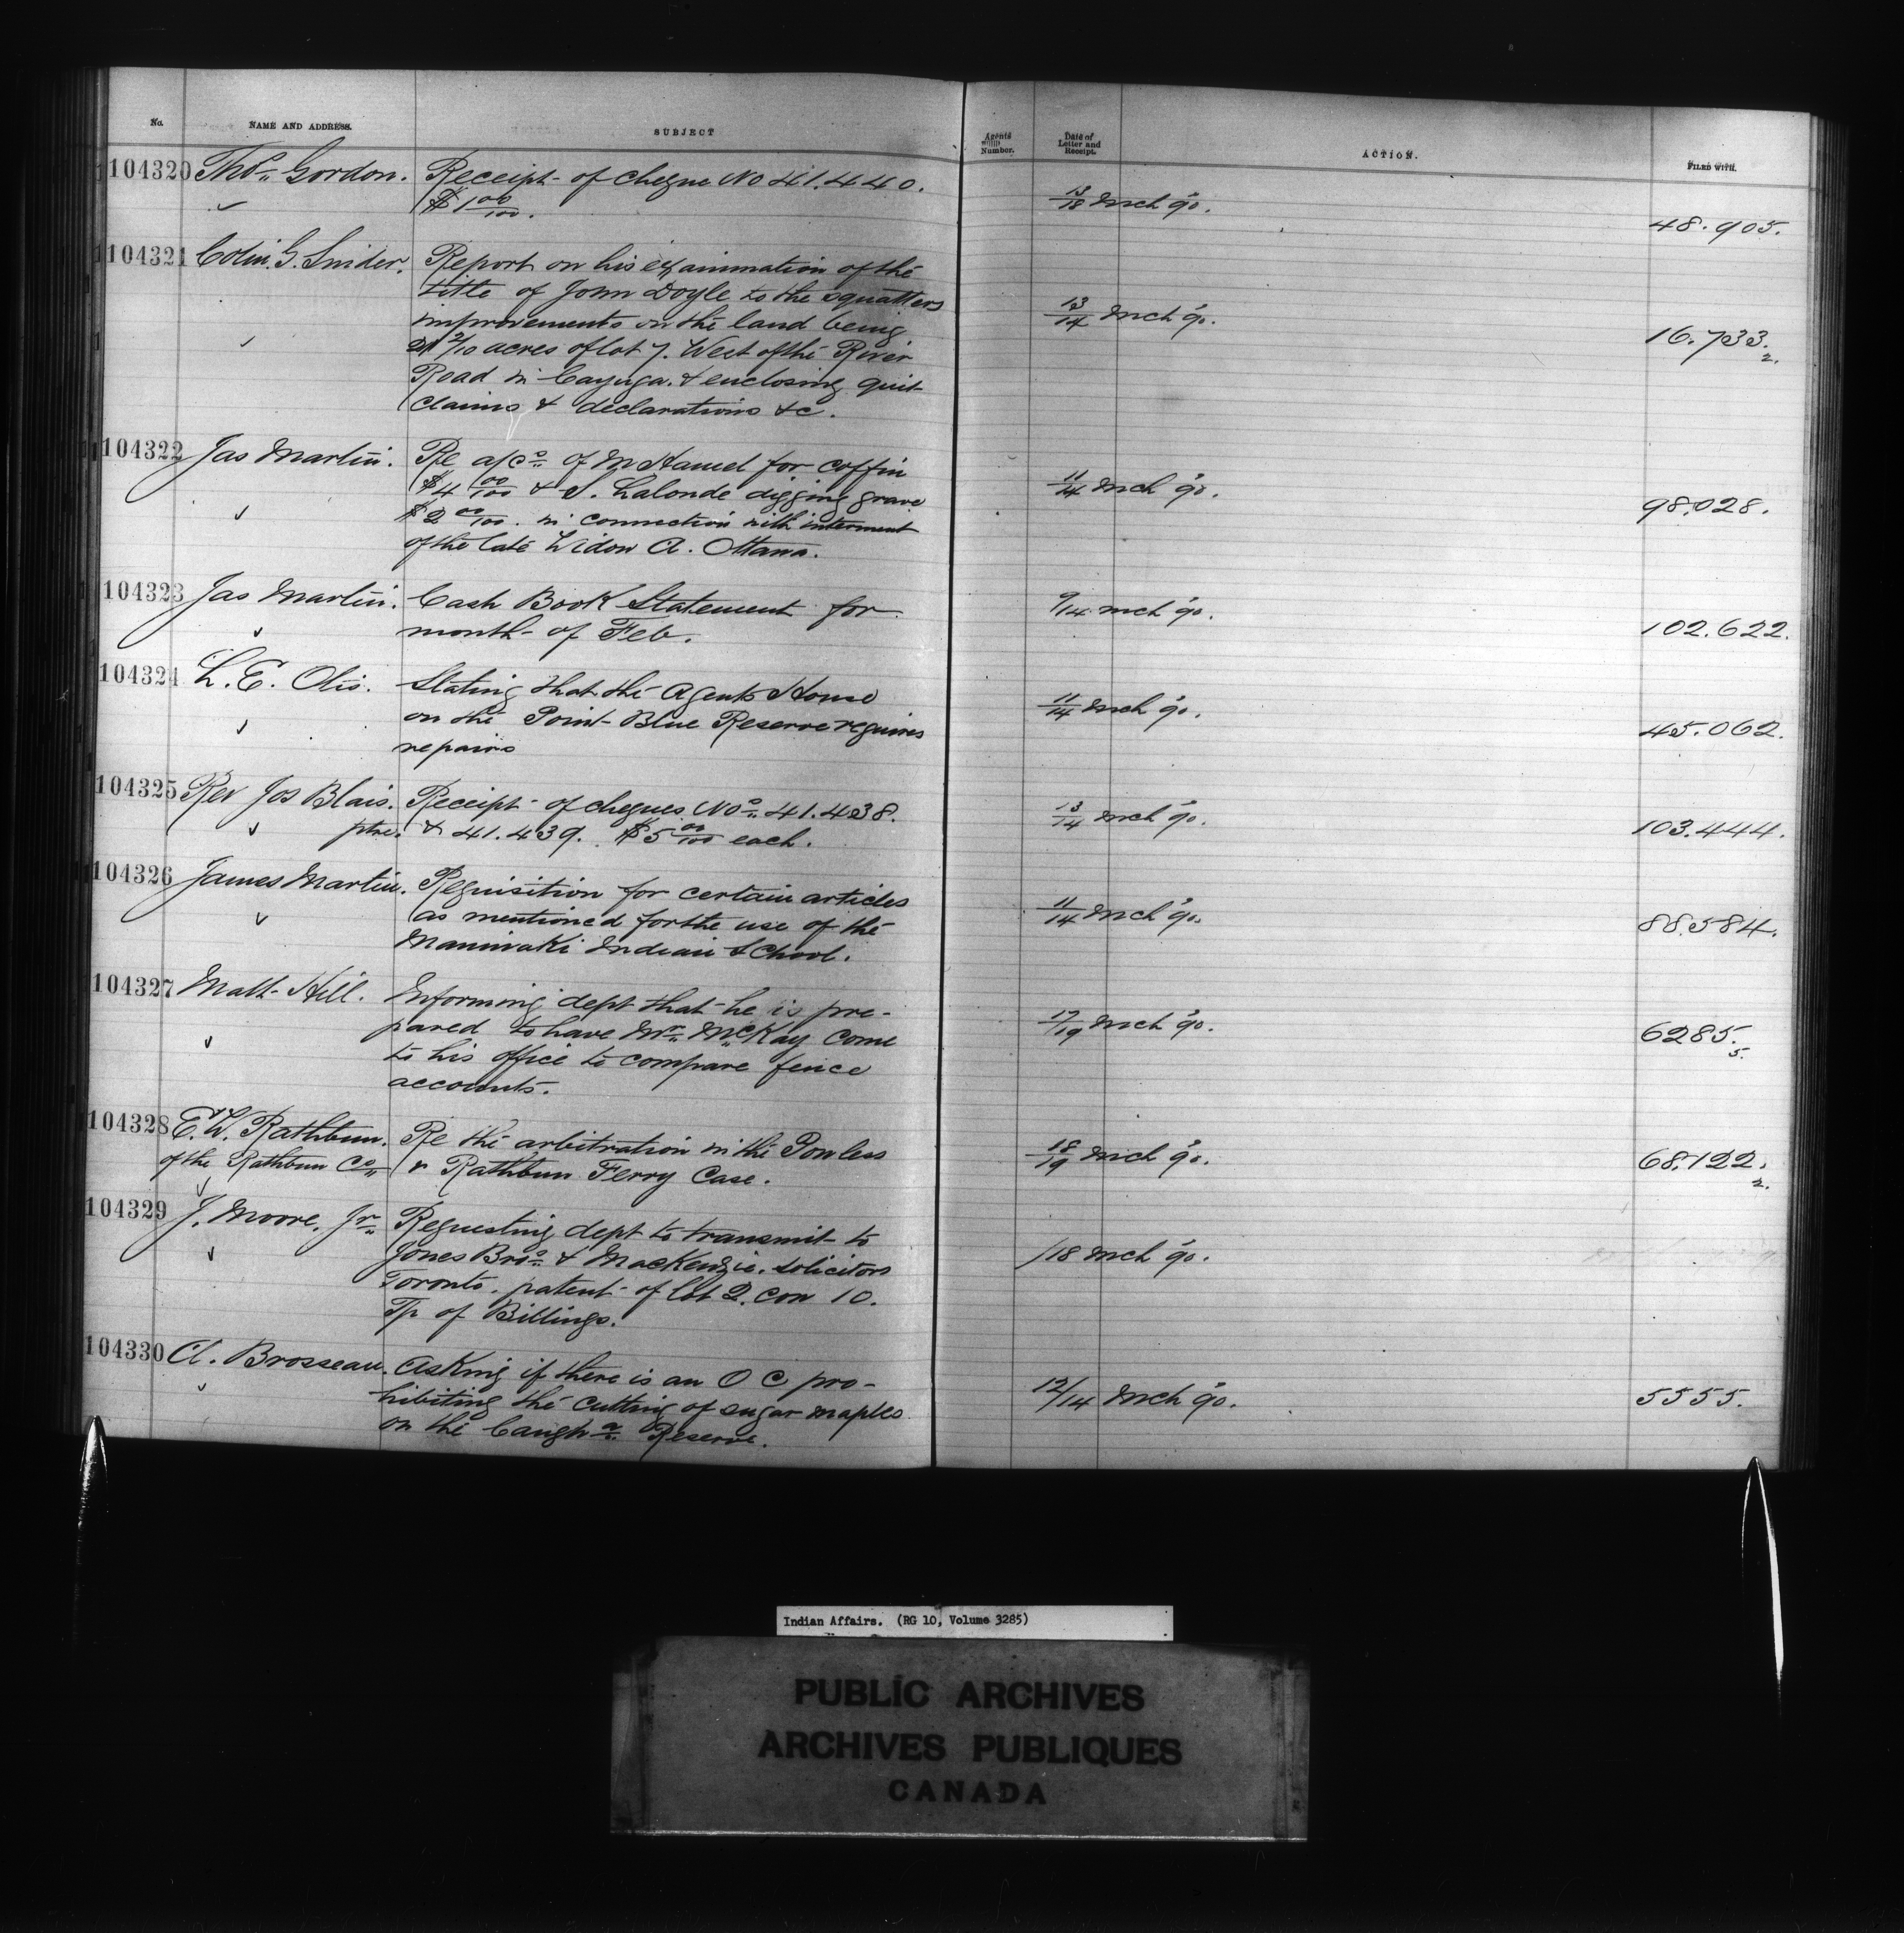 No.
NAME AND ADDRESS.
SUBJECT
Agents Number.
Date of Letter and Receipt.
ACTION.
FILED WITH.
104320 Thos. Gordon. Receipt of cheque No 41.440. 13/18 Mch 90. 48.905.
$1 00/100.
104321 Colin. G. Snider. Report on his examination of the
title of John Doyle to the squatters 13/14 Mch 90. 16.733.2.
improvements on the land being
2/10 acres of lot 7. West of the River
Road in Cayuga. & enclosing quit
claims & declarations &c.
104322 Jas Martin. Re a/cs of M Hamel for coffin
$4 00/100 & S. Lalonde digging grave 11/14 Mch 90. 98.028.
$2 00/100. in connection with interment
of the late Widow A. Ottawa.
104323 Jas Martin. Cash Book Statement for 9/14 Mch 90. 102.622.
month of Feb.
104324 L. E. Otis. Stating that the Agents House
on the Point Blue Reserve requires 11/14 Mch 90. 45.062.
repairs
104325 Rev Jos Blais. Receipt of cheques Nos. 41.438. 13/14 Mch 90. 103.444.
ptre. & 41.439. $5 00/100 each.
104326 James Martin. Requisition for certain articles
as mentioned for the use of the 11/14 Mch 90. 88.584.
Maniwaki Indian School.
104327 Matt Hill. Informing dept that he is pre-
pared to have Mr. McKay come 17/19 Mch 90. 6285.5.
to his office to compare fence
accounts.
104328 E. W. Rathbun. Re the arbitration in the Powless 18/19 Mch 90. 68.122.2.
of the Rathbun Co. v Rathbun Ferry Case.
104329 J. Moore. Jr. Requesting dept to transmit to
Jones Bros. & MacKenzie. Solicitors /18 Mch 90.
Toronto. patent of lot 2. con 10.
Tp of Billings.
104330 A. Brosseau. Asking if there is an O C pro-
hibiting the cutting of sugar maples 12/14 Mch 90. 5555.
on the Caugha. Reserve.
Indian Affairs. (RG 10, Volume 3285)
PUBLIC ARCHIVES
ARCHIVES PUBLIQUES
CANADA